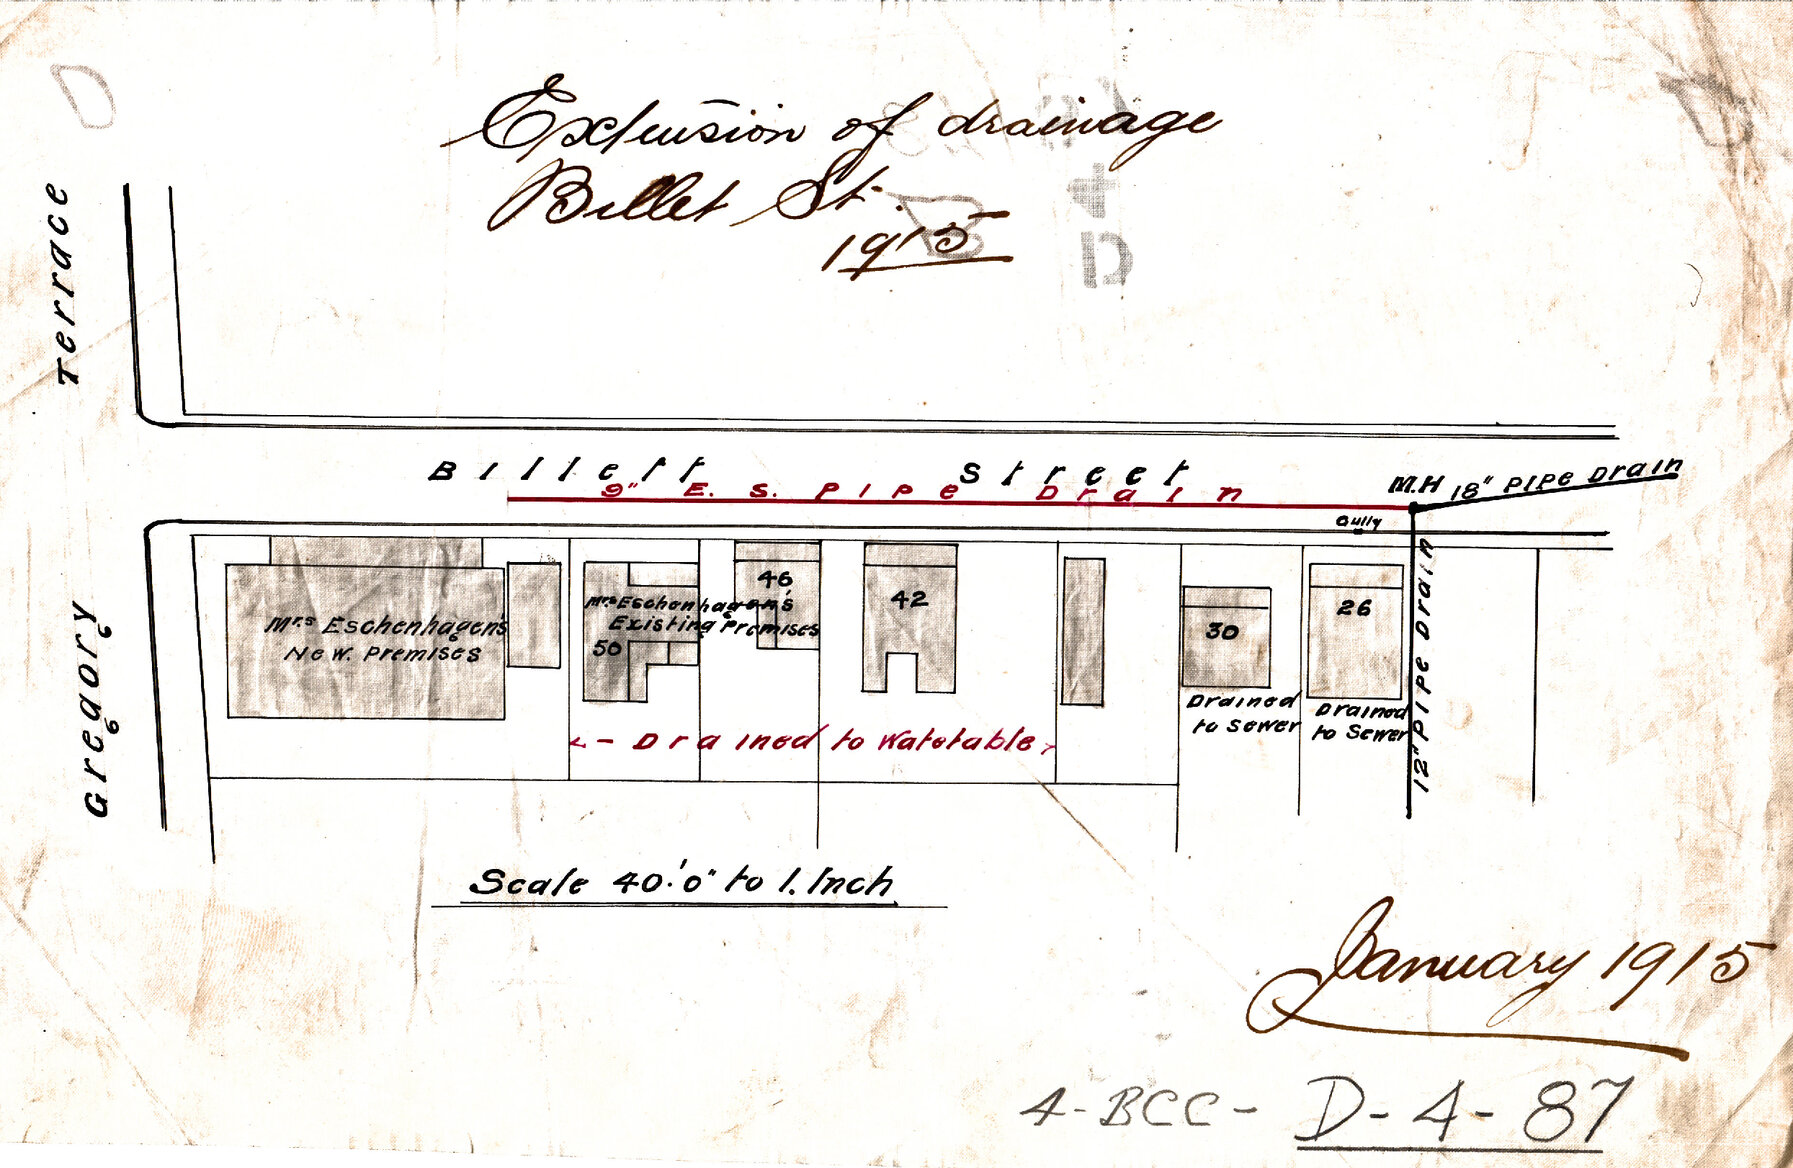 Extension of drainage
Billet St.
1915
Terrace
Gregory
Billett Street
9" E. S. Pipe Drain
M.H
18" Pipe Drain
Gully
12" Pipe Drain
Mrs Eschenhagen's
New. Premises
46
Mrs Eschenhagen's
Existing Premises
50
42
30
26
Drained
to Sewer
Drained
to Sewer
<- Drained to Watetable>
Scale 40.'0" to 1. Inch
January 1915
4-BCC- D-4-87